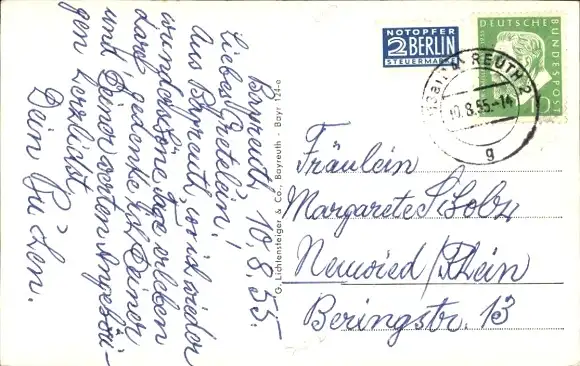 Bayreuth 10.8.55.
Liebes Gretelein!
Aus Bayreuth, wo ich wieder
wunderschöne Tage erleben
darf gedenke ich Deiner
und Deiner werten Angehöri-
gen herzlichst
Dein
G. Lichtensteiger & Co., Bayreuth - Bayr
NOTOPFER
2 BERLIN
STEUERMARKE
DEUTSCHE BUNDESPOST
10
REUTH 2
10.8.55.-14
g
Fräulein
Margarete
Neuwied/Rhein
Beringstr. 13